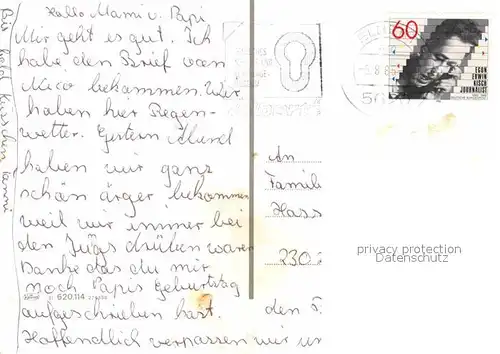 Hallo Mami u. Papi
Mir geht es gut. Ich
habe den Brief von
Mico bekommen. Wir
haben hier Regen-
wetter. Gestern Abend
haben wir ganz
schön ärger bekommen
weil wir immer bei
den Jügs drüben waren
Danke das du mir
noch Papis Geburtstag
aufgeschrieben hast.
Hoffendlich verpassen wir un
Bis bald
620.114
60
EGON
ERWIN
KISCH
JOURNALIST
An
Famili
Hass
230
den
privacy protection
Datenschutz